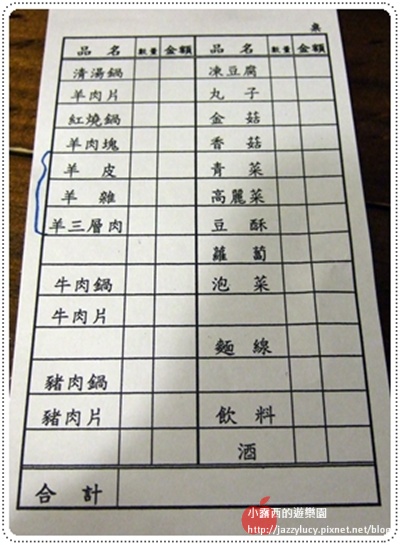 桌
品名 數量 金額 品名 數量 金額
清湯鍋 凍豆腐
羊肉片 丸子
紅燒鍋 金菇
羊肉塊 香菇
羊皮 青菜
羊雜 高麗菜
羊三層肉 豆酥
蘿蔔
牛肉鍋 泡菜
牛肉片
麵線
豬肉鍋
豬肉片 飲料
酒
合計
小露西的遊樂園
http://jazzylucy.pixnet.net/blog